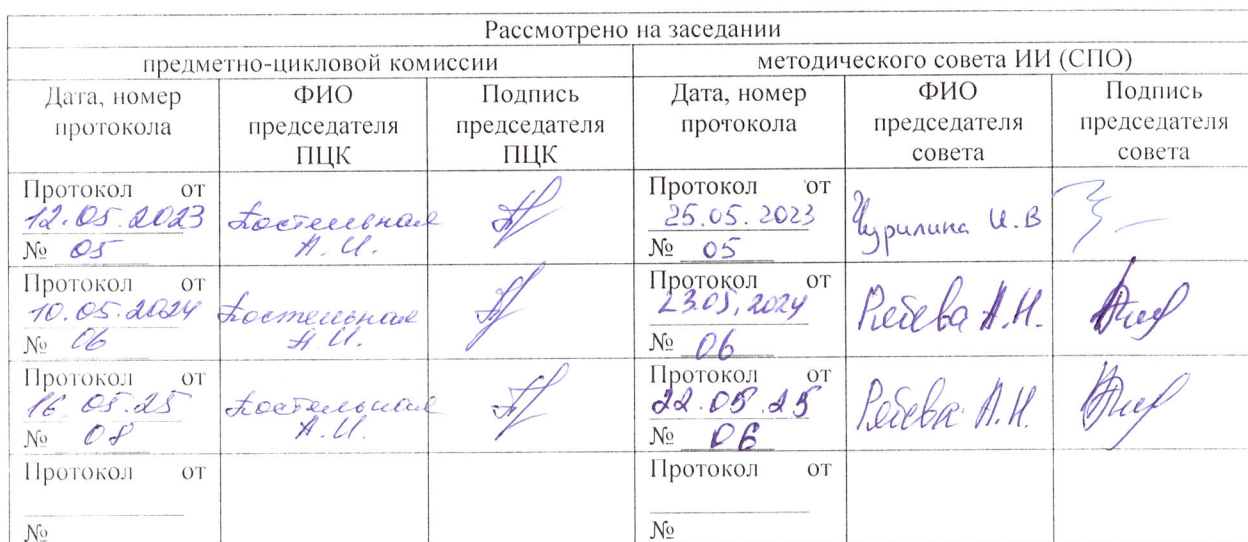 Рассмотрено на заседании
предметно-цикловой комиссии
методического совета ИИ (СПО)
Дата, номер
протокола
ФИО
председателя
ПЦК
Подпись
председателя
ПЦК
Дата, номер
протокола
ФИО
председателя
совета
Подпись
председателя
совета
Протокол от
12.05.2023
№ 05
Костельная
А.И.
Протокол от
25.05.2023
№ 05
Чурилина И.В
Протокол от
10.05.2024
№ 06
Костельная
А.И.
Протокол от
23.05.2024
№ 06
А.Н.
Протокол от
16.05.25
№ 08
Костельная
А.И.
Протокол от
22.05.25
№ 06
А.Н.
Протокол от
№
Протокол от
№